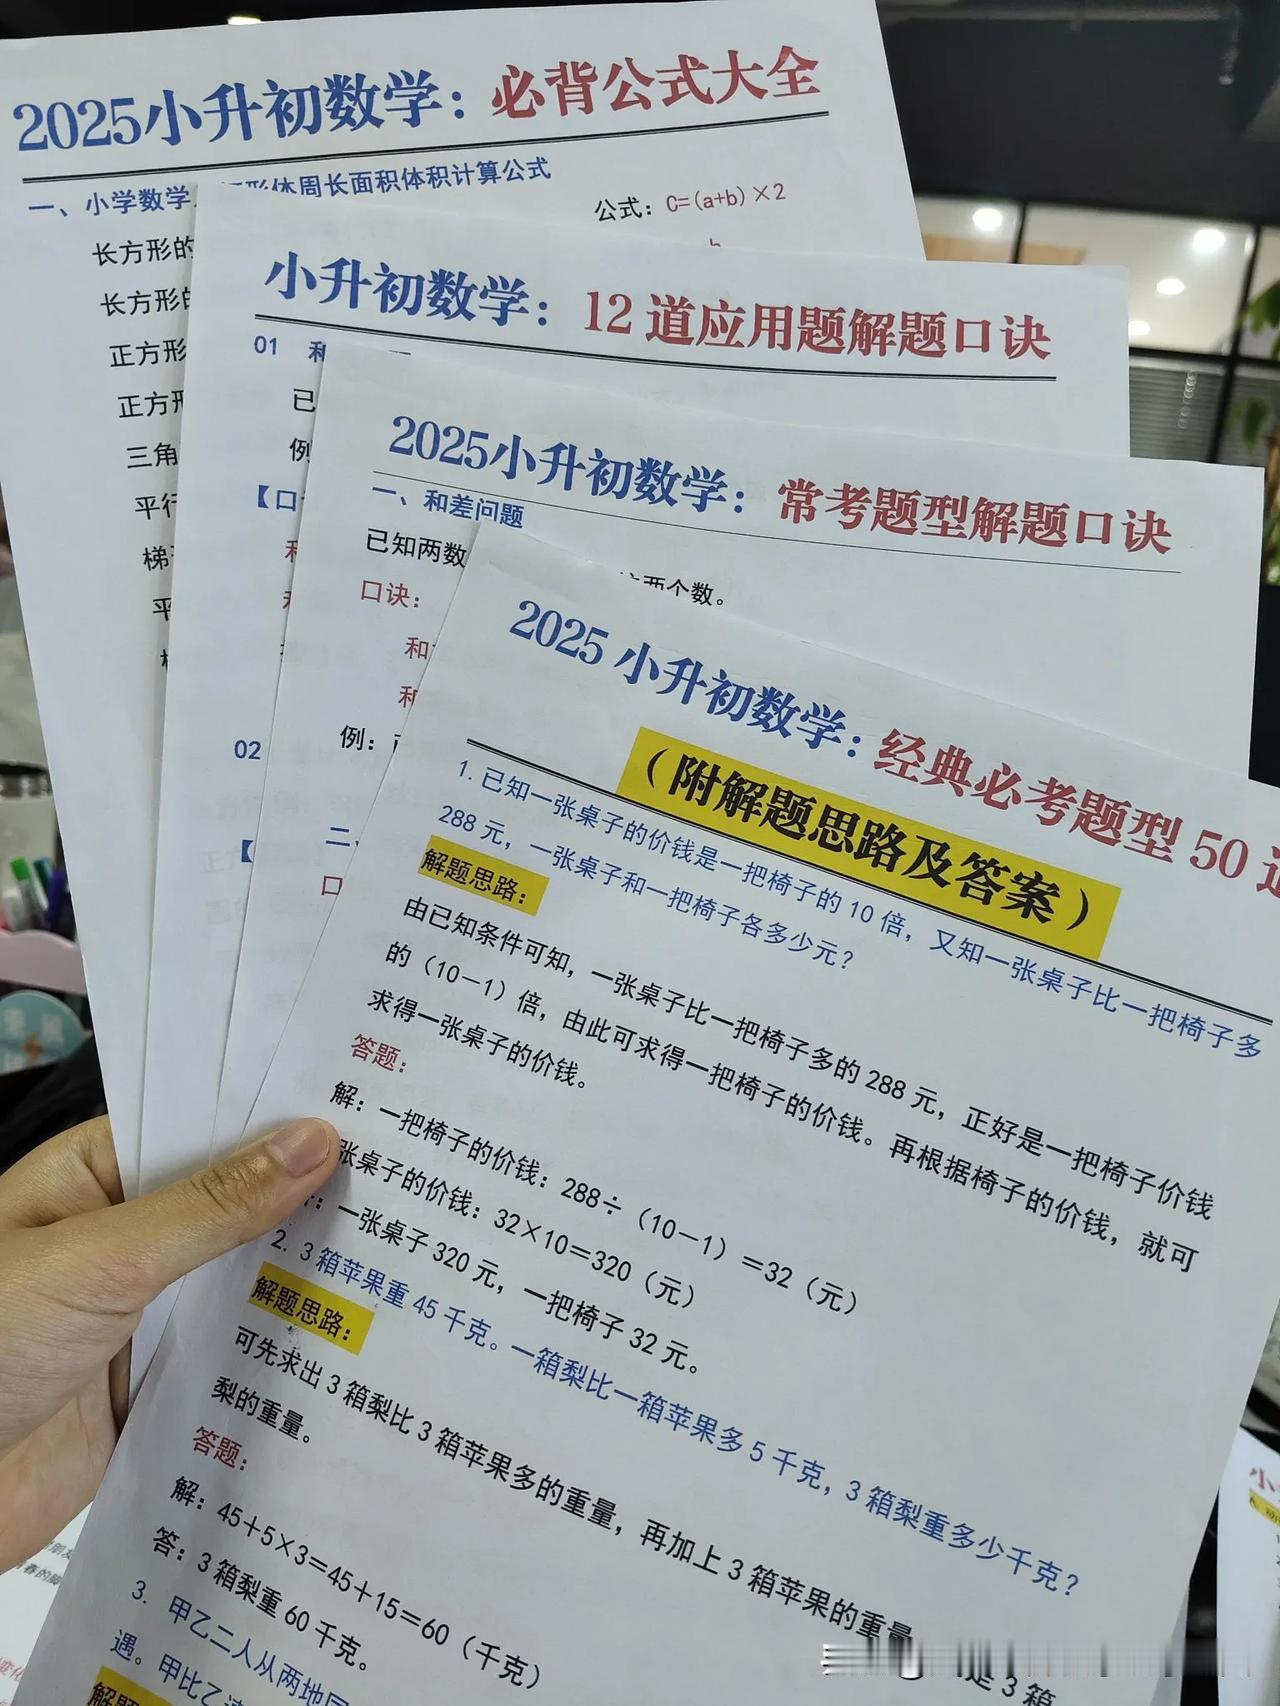 2025小升初数学：必背公式大全
一、小学数学 形体周长面积体积计算公式
长方形的 公式：C=(a+b)×2
长方形的
正方形
正方形
三角
平行
梯
平
小升初数学：12道应用题解题口诀
01 和
已
例
【口
02
【
2025小升初数学：常考题型解题口诀
一、和差问题
已知两数 两个数。
口诀：
和
和
例：
二、
口
2025小升初数学：经典必考题型50道
（附解题思路及答案）
1.已知一张桌子的价钱是一把椅子的10倍，又知一张桌子比一把椅子多
288元，一张桌子和一把椅子各多少元？
解题思路：
由已知条件可知，一张桌子比一把椅子多的288元，正好是一把椅子价钱
的（10－1）倍，由此可求得一把椅子的价钱。再根据椅子的价钱，就可
求得一张桌子的价钱。
答题：
解：一把椅子的价钱：288÷（10－1）＝32（元）
张桌子的价钱：32×10＝320（元）
：一张桌子320元，一把椅子32元。
2. 3箱苹果重45千克。一箱梨比一箱苹果多5千克，3箱梨重多少千克？
解题思路：
可先求出3箱梨比3箱苹果多的重量，再加上3箱苹果的重量 是3箱
梨的重量。
答题：
解：45＋5×3＝45＋15＝60（千克）
答：3箱梨重60千克。
3. 甲乙二人从两地
遇。甲比乙
解题